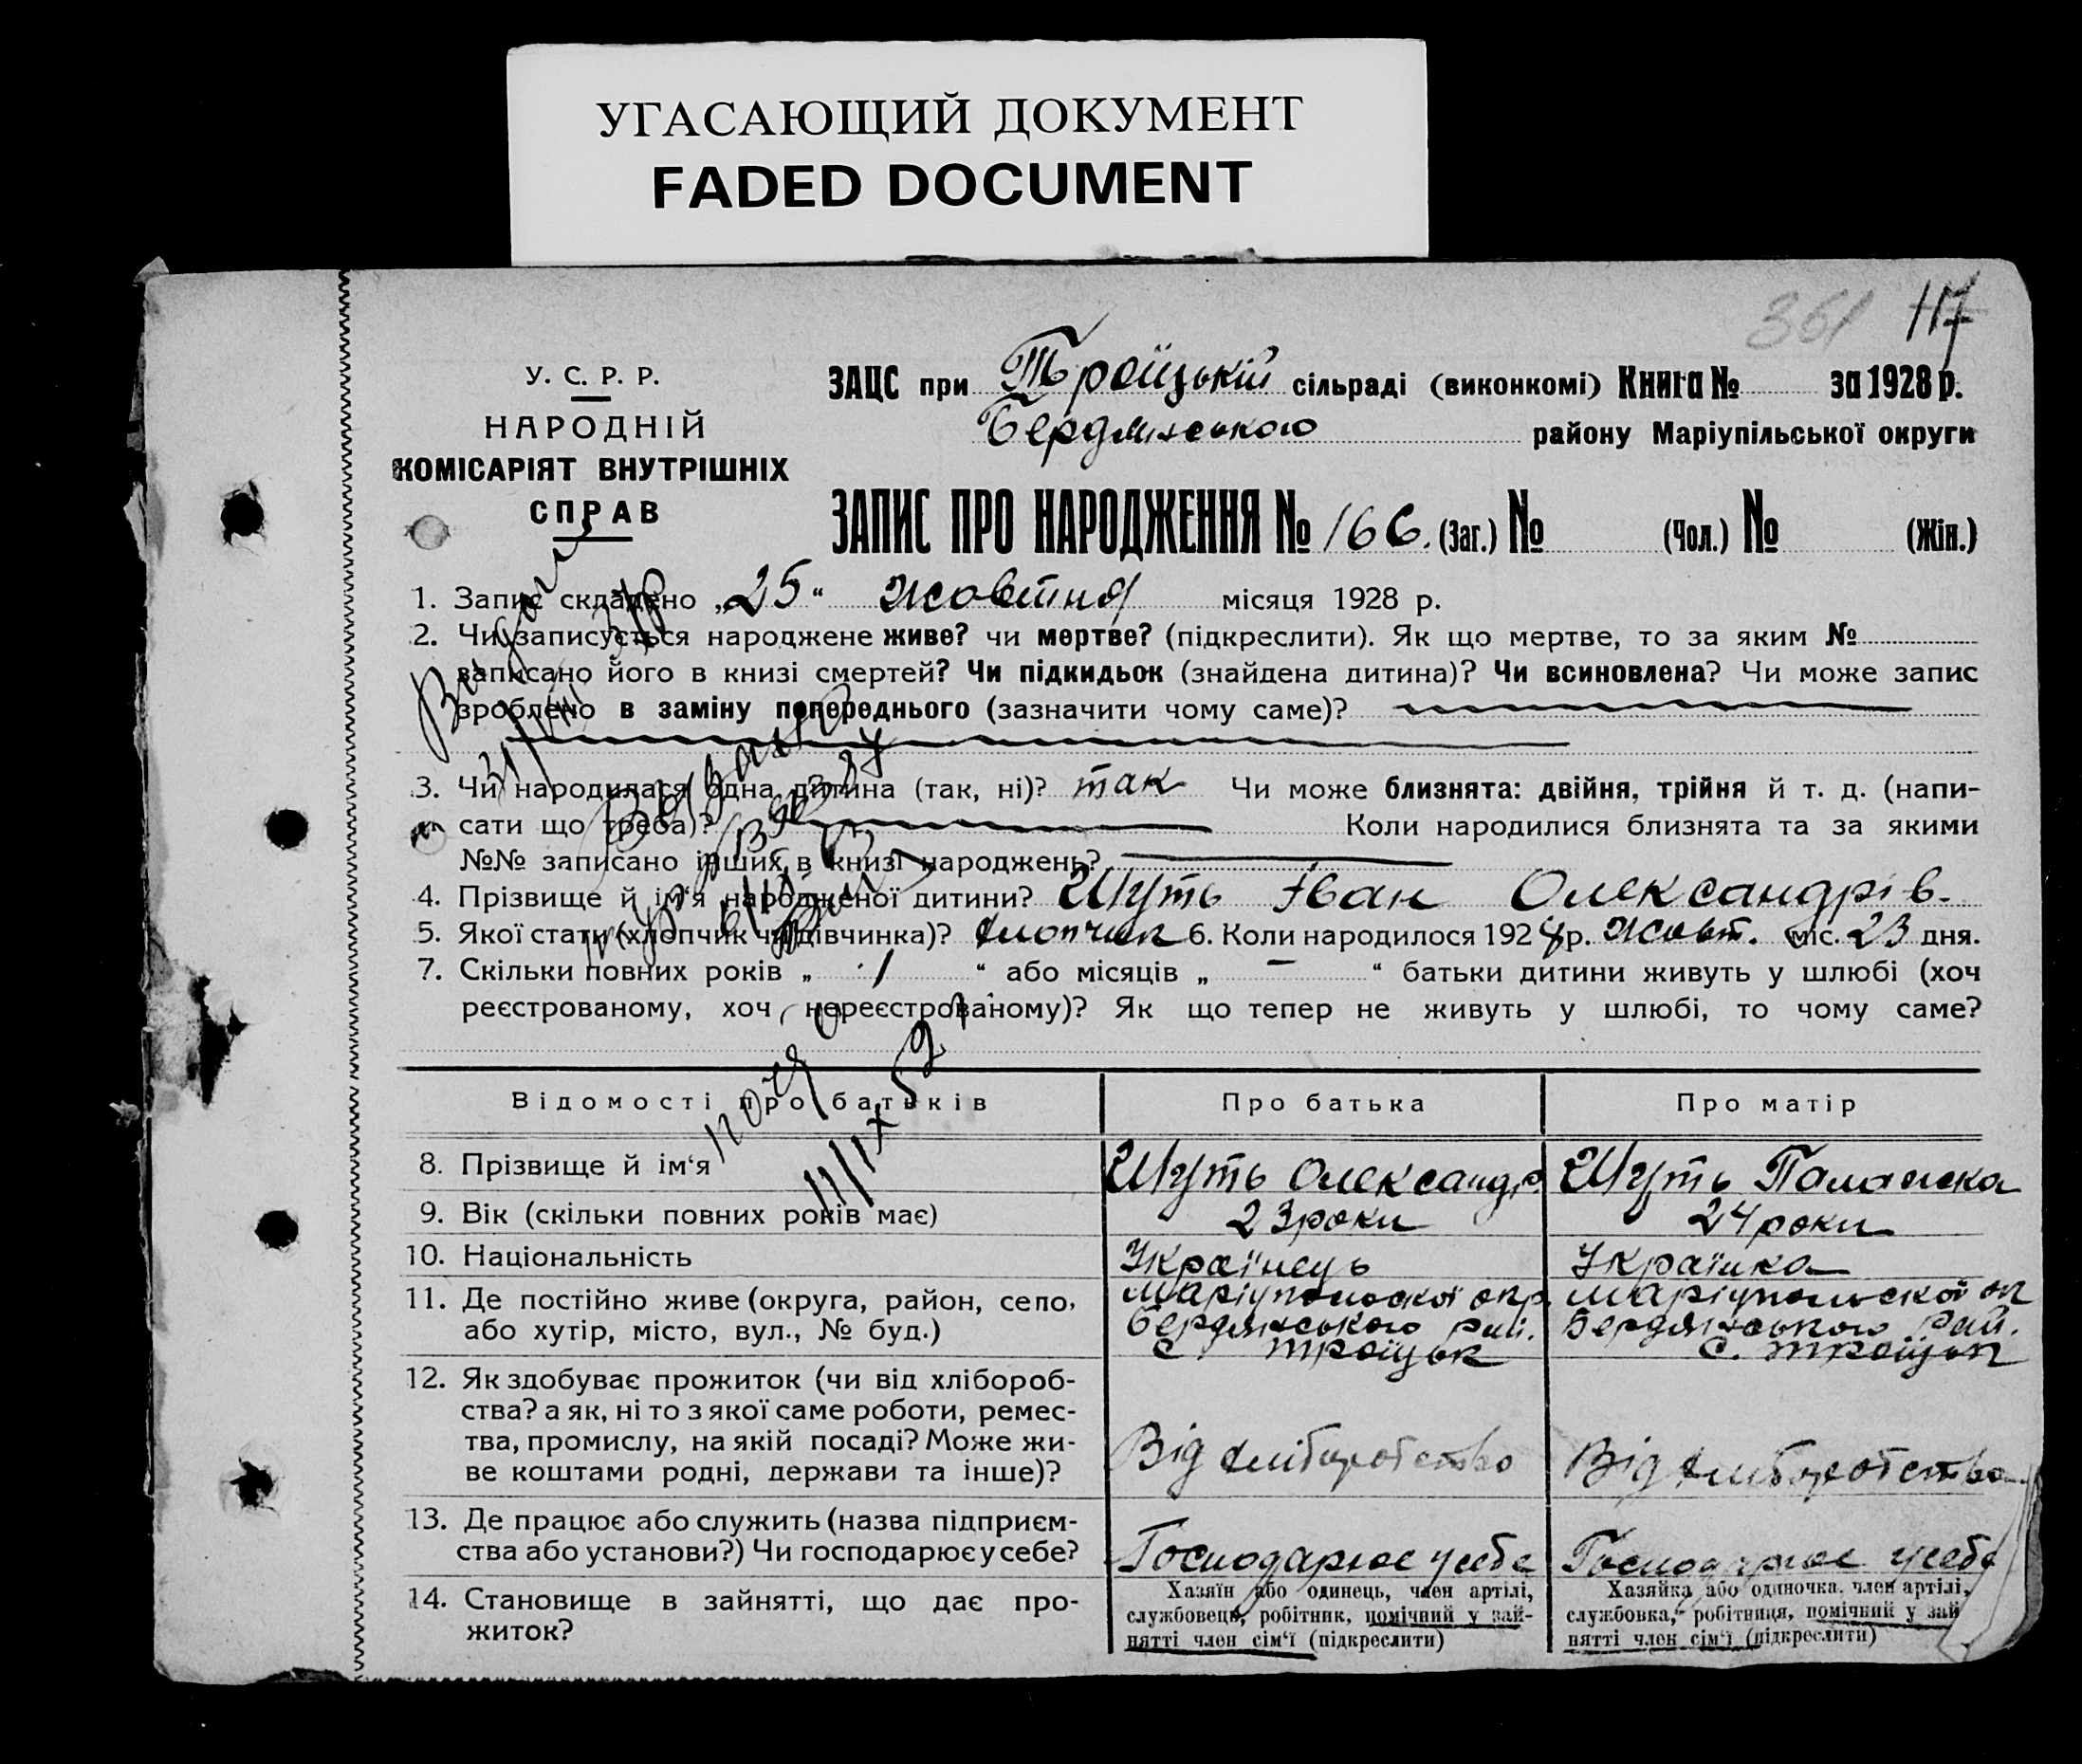 УГАСАЮЩИЙ ДОКУМЕНТ
FADED DOCUMENT
361 117
У. С. Р. Р.
НАРОДНІЙ
КОМІСАРІЯТ ВНУТРІШНІХ
СПРАВ
ЗАЦС при Троїцькій сільраді (виконкомі) Книга № за 1928 р.
Бердянського району Маріупільської округи
ЗАПИС ПРО НАРОДЖЕННЯ № 166. (Заг.) № (Чол.) № (Жін.)
1. Запис складено „25“ жовтня місяця 1928 р.
2. Чи записується народжене живе? чи мертве? (підкреслити). Як що мертве, то за яким №
записано його в книзі смертей? Чи підкидьок (знайдена дитина)? Чи всиновлена? Чи може запис
зроблено в заміну попереднього (зазначити чому саме)?
3. Чи народилася одна дитина (так, ні)? так Чи може близнята: двійня, трійня й т. д. (напи-
сати що треба)? Коли народилися близнята та за якими
№№ записано інших в книзі народжень?
4. Прізвище й ім‘я народженої дитини? Шуть Іван Олександрів.
5. Якої стати (хлопчик чи дівчинка)? хлопчик 6. Коли народилося 1928 р. жовт. міс. 23 дня.
7. Скільки повних років „ 1 “ або місяців „ – “ батьки дитини живуть у шлюбі (хоч
реєстрованому, хоч нереєстрованому)? Як що тепер не живуть у шлюбі, то чому саме?
11/IX 52
Відомості про батьків Про батька Про матір
8. Прізвище й ім‘я Шуть Олександр. Шуть Палажка
9. Вік (скільки повних років має) 23 роки 24 роки
10. Національність Українець Українка
11. Де постійно живе (округа, район, село,
або хутір, місто, вул., № буд.)
Маріупольскої окр.
Бердянського рай.
с Троїцьк
Маріупольскої ок
Бердянського рай.
с. Троїцьк
12. Як здобуває прожиток (чи від хлібороб-
ства? а як, ні то з якої саме роботи, ремес-
тва, промислу, на якій посаді? Може жи-
ве коштами родні, держави та інше)?
Від хліборобство Від хліборобство
13. Де працює або служить (назва підприєм-
ства або установи?) Чи господарює у себе?
Господарює у себе Господарює у себе
14. Становище в зайнятті, що дає про-
житок?
Хазяїн або одинець, член артілі,
службовець, робітник, помічний у зай-
нятті член сім‘ї (підкреслити)
Хазяйка або одиночка. член артілі,
службовка, робітниця, помічний у зай
нятті член сім‘ї (підкреслити)